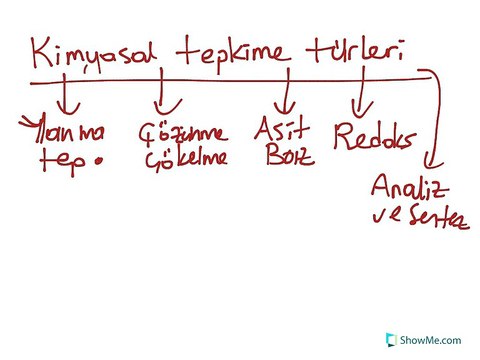 Kimyasal tepkime türleri
Yanma
tep.
Çözünme
Çökelme
Asit
Baz
Redoks
Analiz
ve Sentez
ShowMe.com